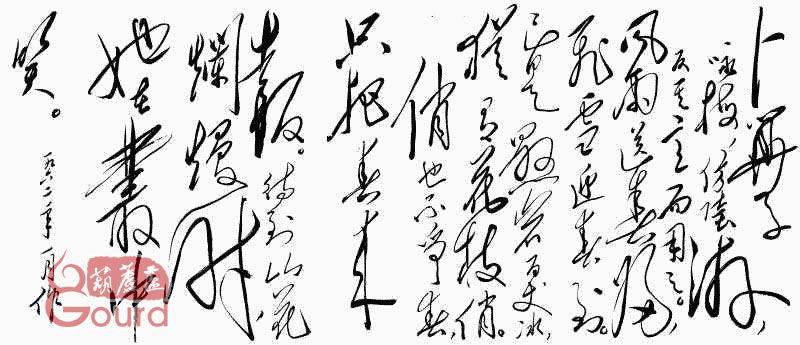 卜算子
咏梅,仿陸游,
反其意而用之。
风雨送春归,
飛雪迎春到。
已是懸岩百丈冰,
猶有花枝俏。
俏也不争春,
只把春来
報。待到山花
爛熳时
她在叢中
笑。
一九六二年一月作
Gourd